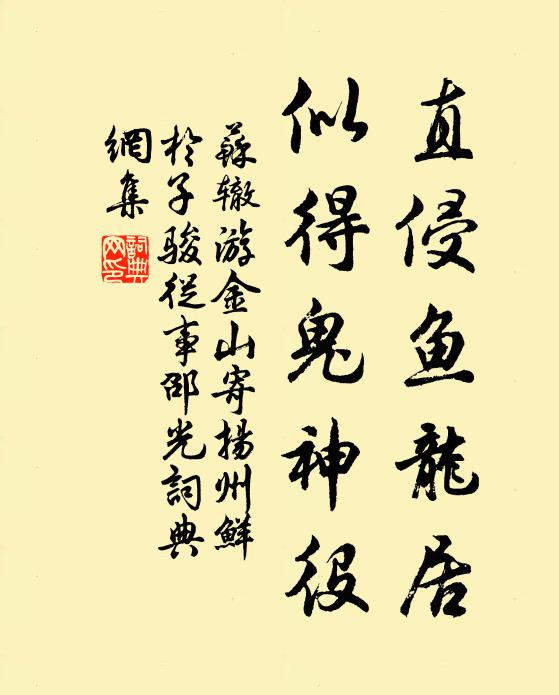 直侵鱼龍居
似得鬼神役
蘇辙游金山寄揚州鮮
於子骏從事邵光詞典
網集
詞典
网印